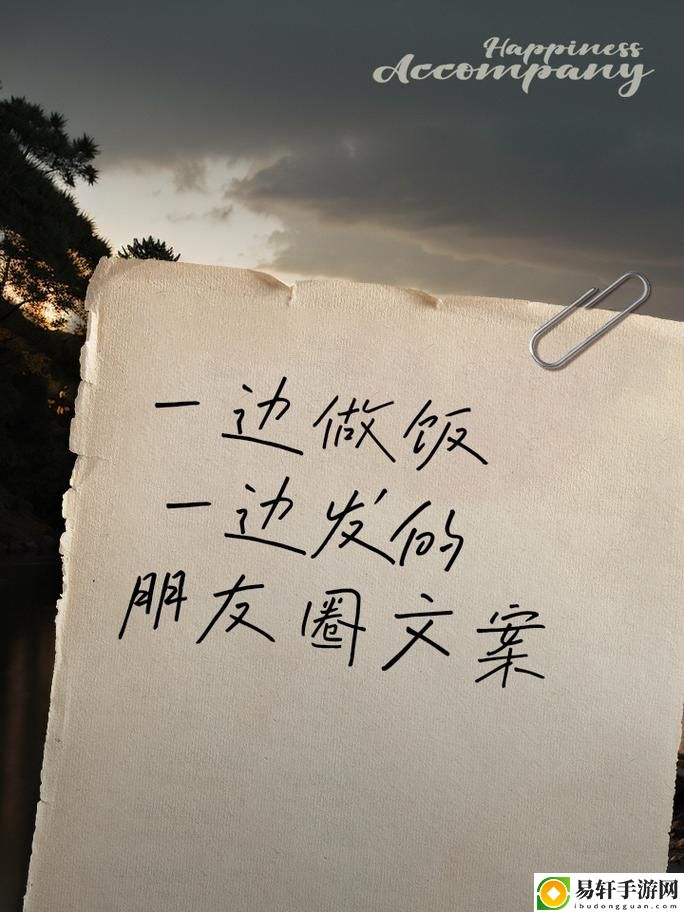 Happiness
Accompany
一边做饭
一边发的
朋友圈文案
易轩手游网
ibudongguan.com